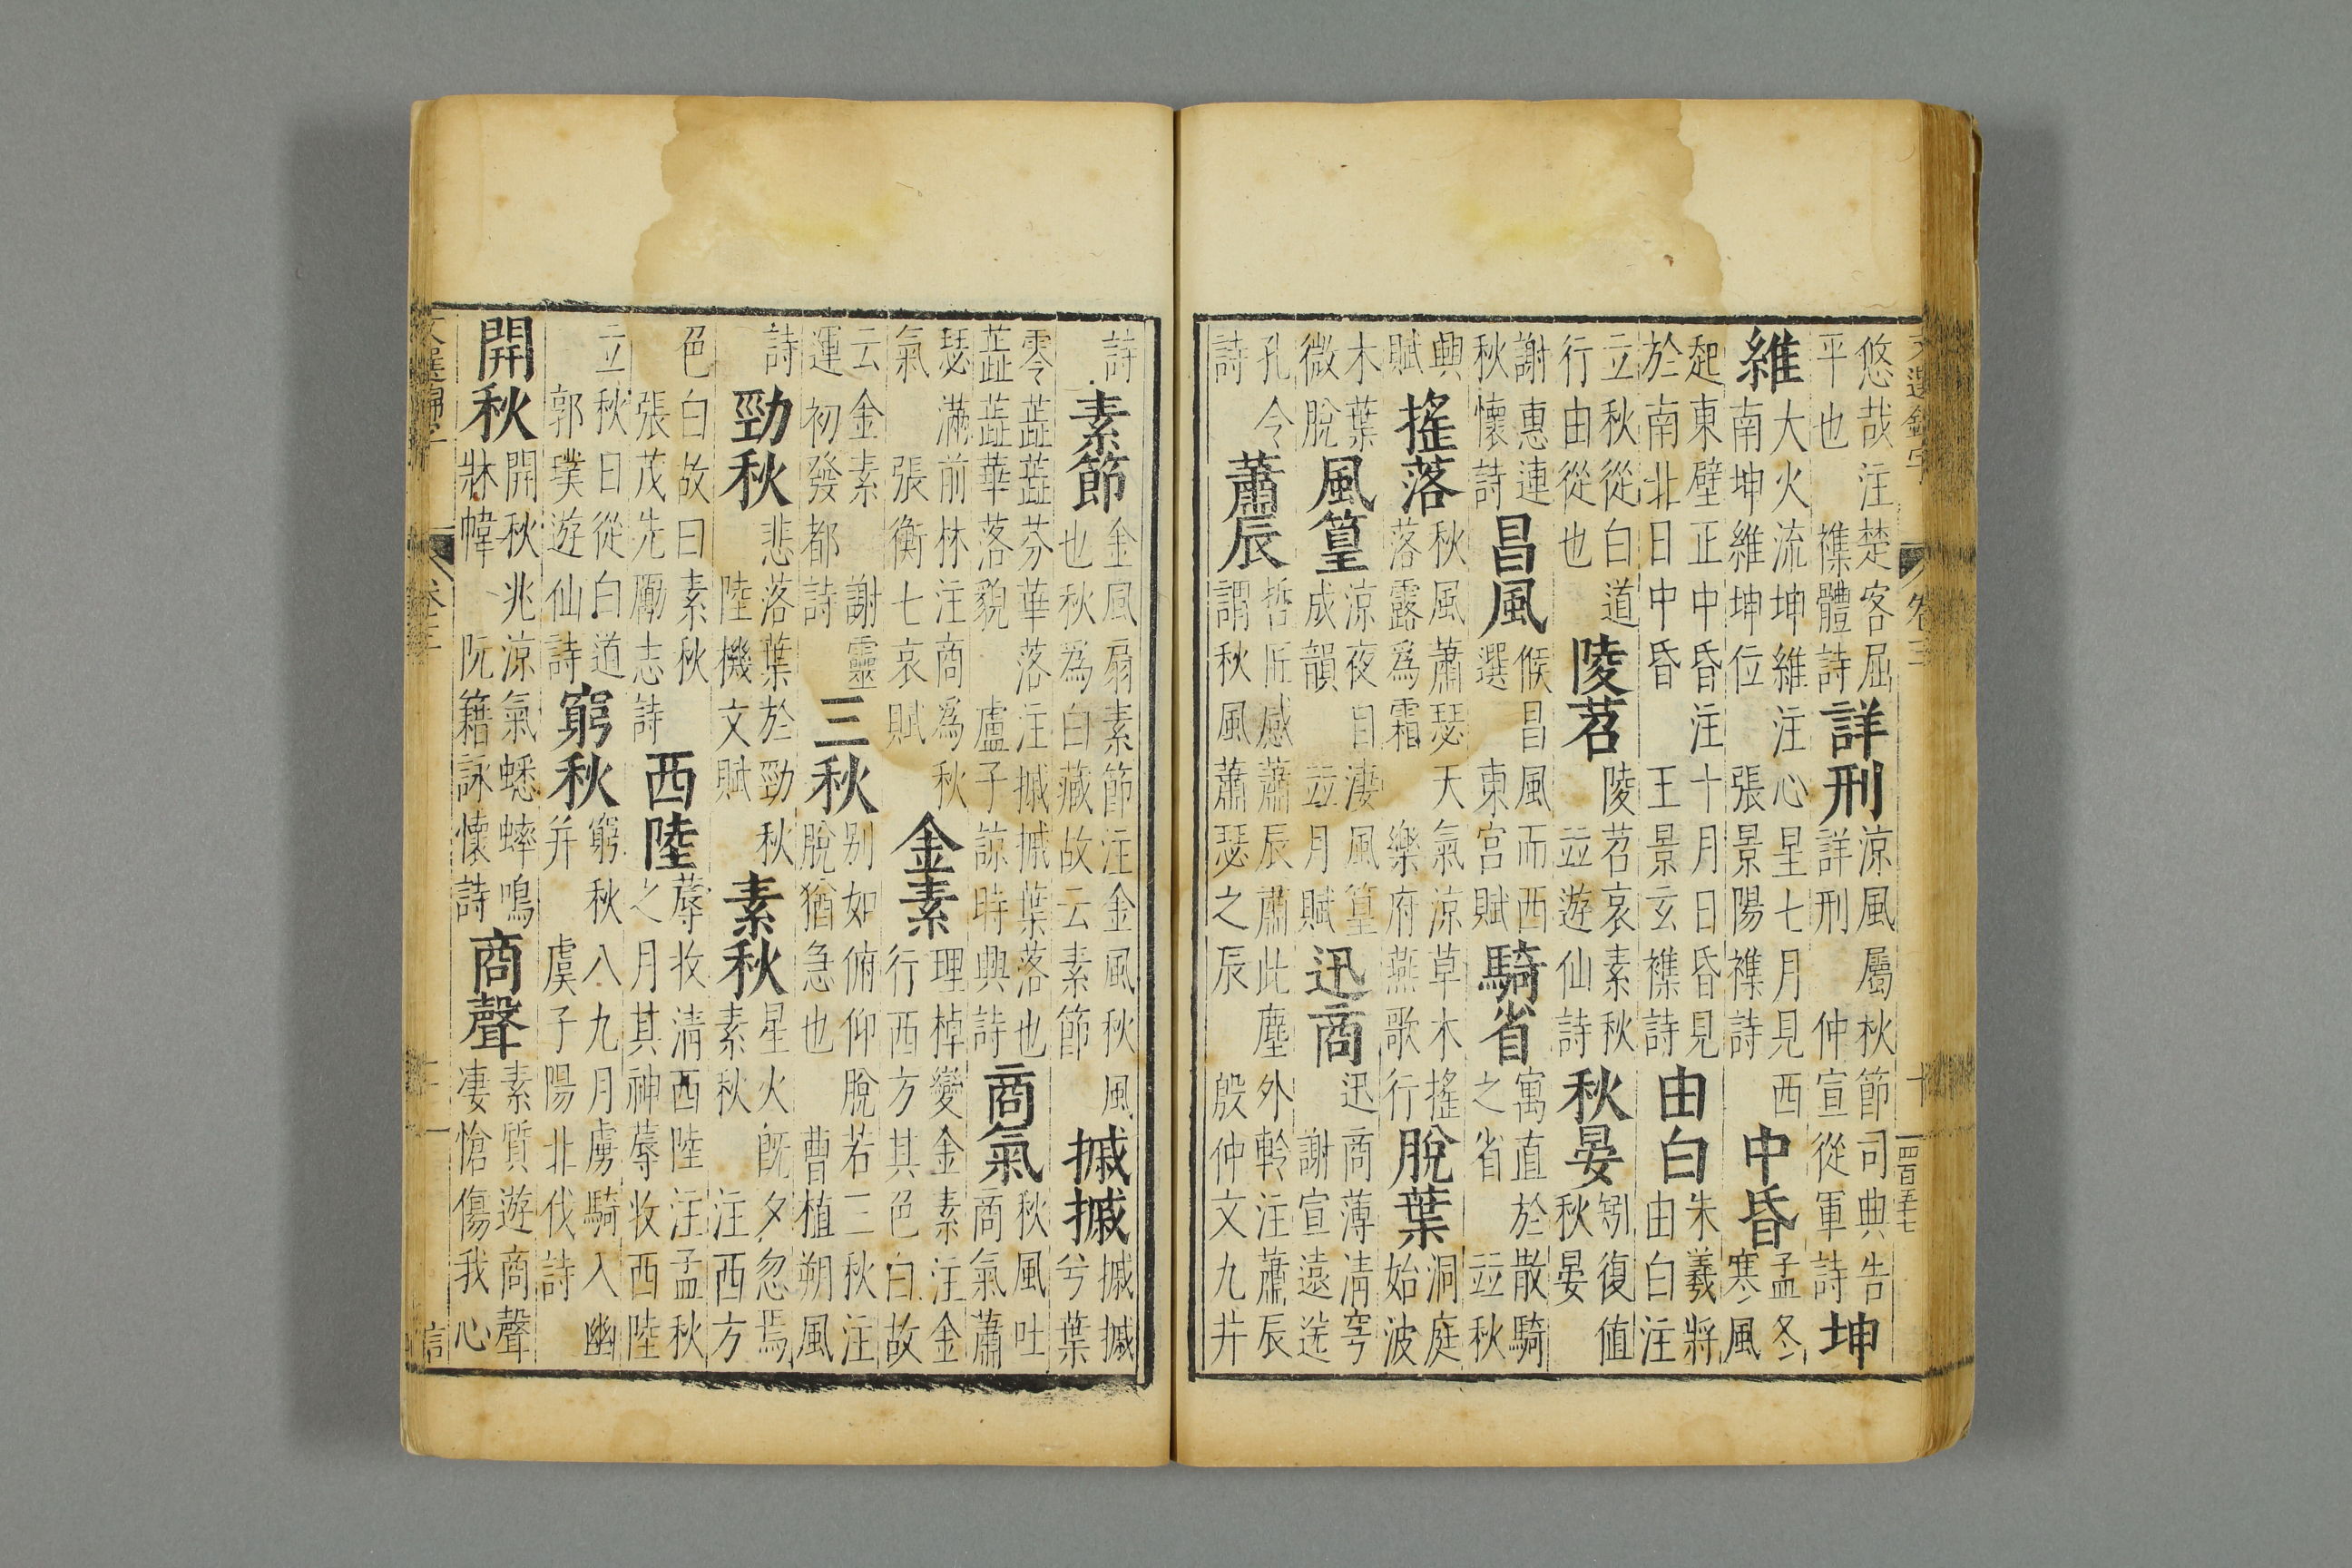 悠哉注楚客屈平也 襍體詩 詳刑 涼風屬秋節司典告詳刑 仲宣從軍詩 坤
維 大火流坤維注心星七月見西南坤維坤位 張景陽襍詩 中昏 孟冬寒風
起東壁正中昏注十月日昏見於南北日中昏 王景玄襍詩 由白 朱羲將由白注
立秋從白道行由從也 陵苕 陵苕哀素秋 並遊仙詩 秋晏 矧復值秋晏
謝惠連秋懷詩 昌風 候昌風而西選 東宮賦 騎省 寓直於散騎之省 並秋
興賦 搖落 秋風蕭瑟天氣涼草木搖落露為霜 樂府燕歌行 脫葉 洞庭始波
木葉微脫 風篁 涼夜自淒風篁成韻 並月賦 迅商 迅商薄清穹 謝宣遠送
孔令詩 蕭辰 哲匠感蕭辰肅此塵外軫注蕭辰謂秋風蕭瑟之辰 殷仲文九井
文選錦字 卷三 十 四百五十七
詩 素節 金風扇素節注金風秋風也秋為白藏故云素節 摵摵 摵摵兮葉
零蘂蘂芬華落注摵摵葉落也蘂蘂華落貌 盧子諒時興詩 商氣 秋風吐商氣蕭
瑟滿前林注商為秋氣 張衡七哀賦 金素 理棹變金素注金行西方其色白故
云金素 謝靈運初發都詩 三秋 別如俯仰脫若三秋注脫猶急也 曹植朔風
詩 勁秋 悲落葉於勁秋 陸機文賦 素秋 星火既夕忽焉素秋 注西方
色白故曰素秋 張茂先勵志詩 西陸 蓐收清西陸注孟秋之月其神蓐收西陸
立秋日從白道 郭璞遊仙詩 窮秋 窮秋八九月虜騎入幽并 虞子陽北伐詩
開秋 開秋兆涼氣蟋蟀鳴牀幃 阮籍詠懷詩 商聲 素質遊商聲淒愴傷我心